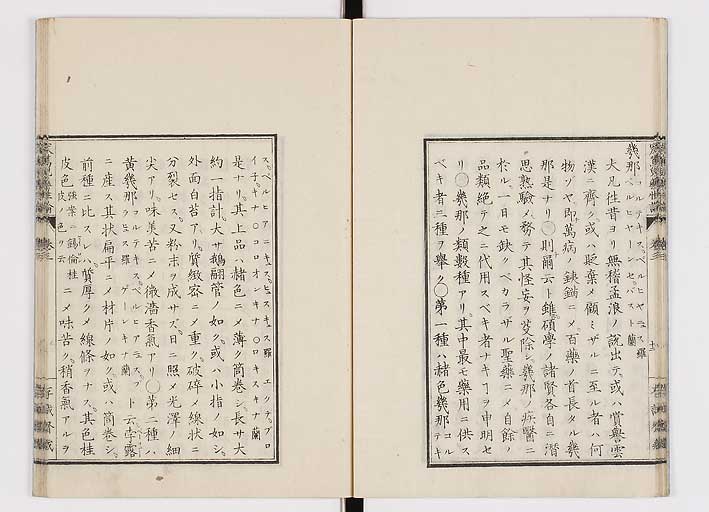 幾那 コルテキス、ペルヒヤニュス羅
ペルヒヤーンセ、バスト蘭
大凡往昔ヨリ無稽孟浪ノ説出テ或ハ賞譽雲
漢ニ齊ク或ハ貶棄メ顧ミザルニ至ル者ハ何
物ソヤ即萬病ノ鈇鑕ニメ百藥ノ首長タル幾
那是ナリ○則爾云ト雖碩學ノ諸賢各自ニ潜
思熟驗メ務テ其怪妄ヲ芟除シ幾那ハ疾醫ニ
於ル一日モ缺クベカラザル聖藥ニメ自餘ノ
品類絕テ之ニ代用スベキ者ナキヿヲ申明セ
リ○幾那ノ類數種アリ其中最モ藥用ニ供ス
ベキ者三種ヲ擧ク○第一種ハ赭色幾那コルテキ
ス、ペルヒアニキス、ヒスキュス羅 エクテ、ブロ
イ子、キナ○コロオンキナ○ロキスキナ蘭
是ナリ其上品ハ赭色ニメ薄ク筒卷シ長サ大
約一指計大サ鵝翮管ノ如ク或ハ小指ノ如シ
外面白苔アリ質緻密ニメ重ク破碎メ線狀ニ
分裂セス又粉末ヲ成サズ日ニ照メ光澤ノ細
尖アリ味美苦ニメ微濇香氣アリ○第二種ハ
黃幾那 コルテキス、ペルヒアニュス、フラヒュス羅 ゲーレキナ蘭 ト云孛露
ニ產ス其狀扁平ニメ材片ノ如ク或ハ筒卷シ
前種ニ比スレハ質厚クメ線條ヲナス其色桂
皮色 強案ニ錫倫桂皮ノ色ヲ云 ニメ味苦ク稍香氣アルヲ